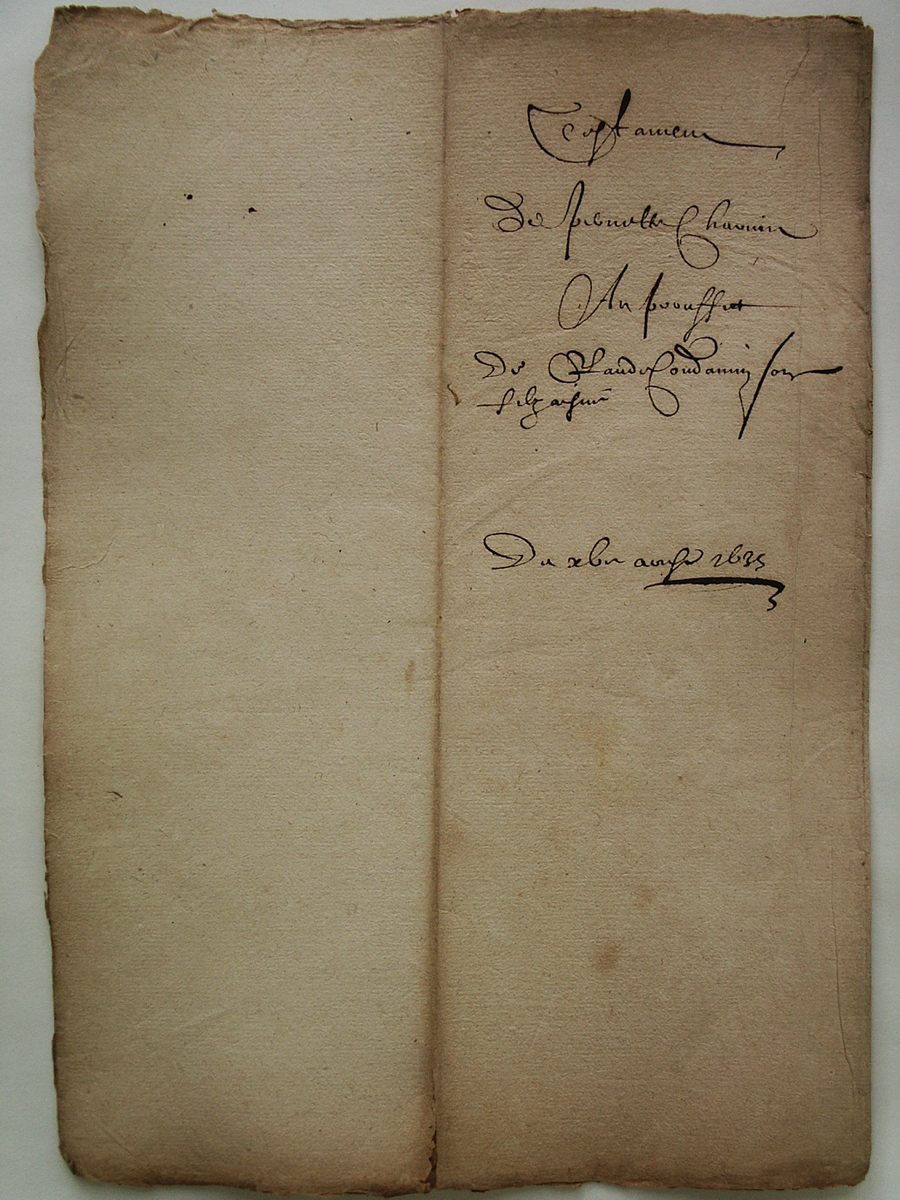 Testament
De pernette Chavin
Au prouffit
De Claude Condamin son
filz aisné
Du xbre 1635